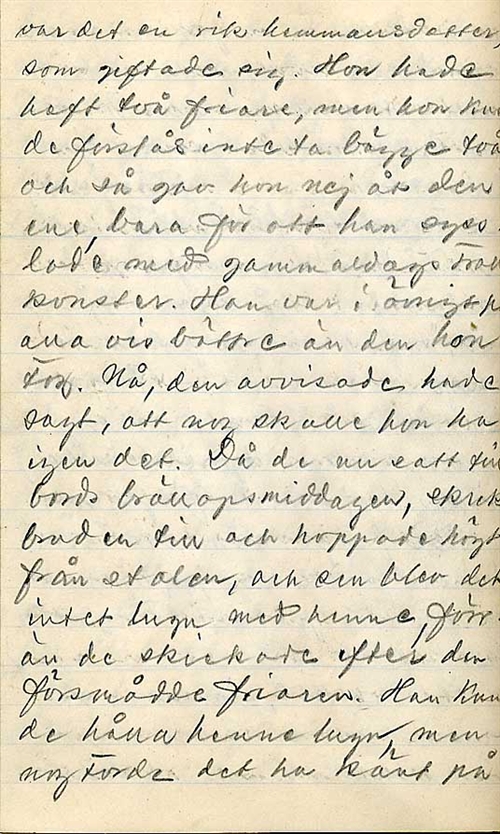 var det en rik hemmansdotter
som giftade sig. Hon hade
haft två friare, men hon kun
de förstås inte ta bägge två
och så gav hon nej åt den
ene, bara för att han syss-
lade med gammaldags troll
konster. Han var i övrigt p
alla vis bättre än den hon
tog. Nå, den avvisade hade
sagt, att nog skulle hon ha
igen det. Då de nu satt till
bords bröllopsmiddagen, skrek
bruden till och hoppade högt
från stolen, och sen blev det
intet lugn med henne, förr-
än de skickade efter den
försmådde friaren. Han kun
de hålla henne lugn, men
nog torde det ha känt på